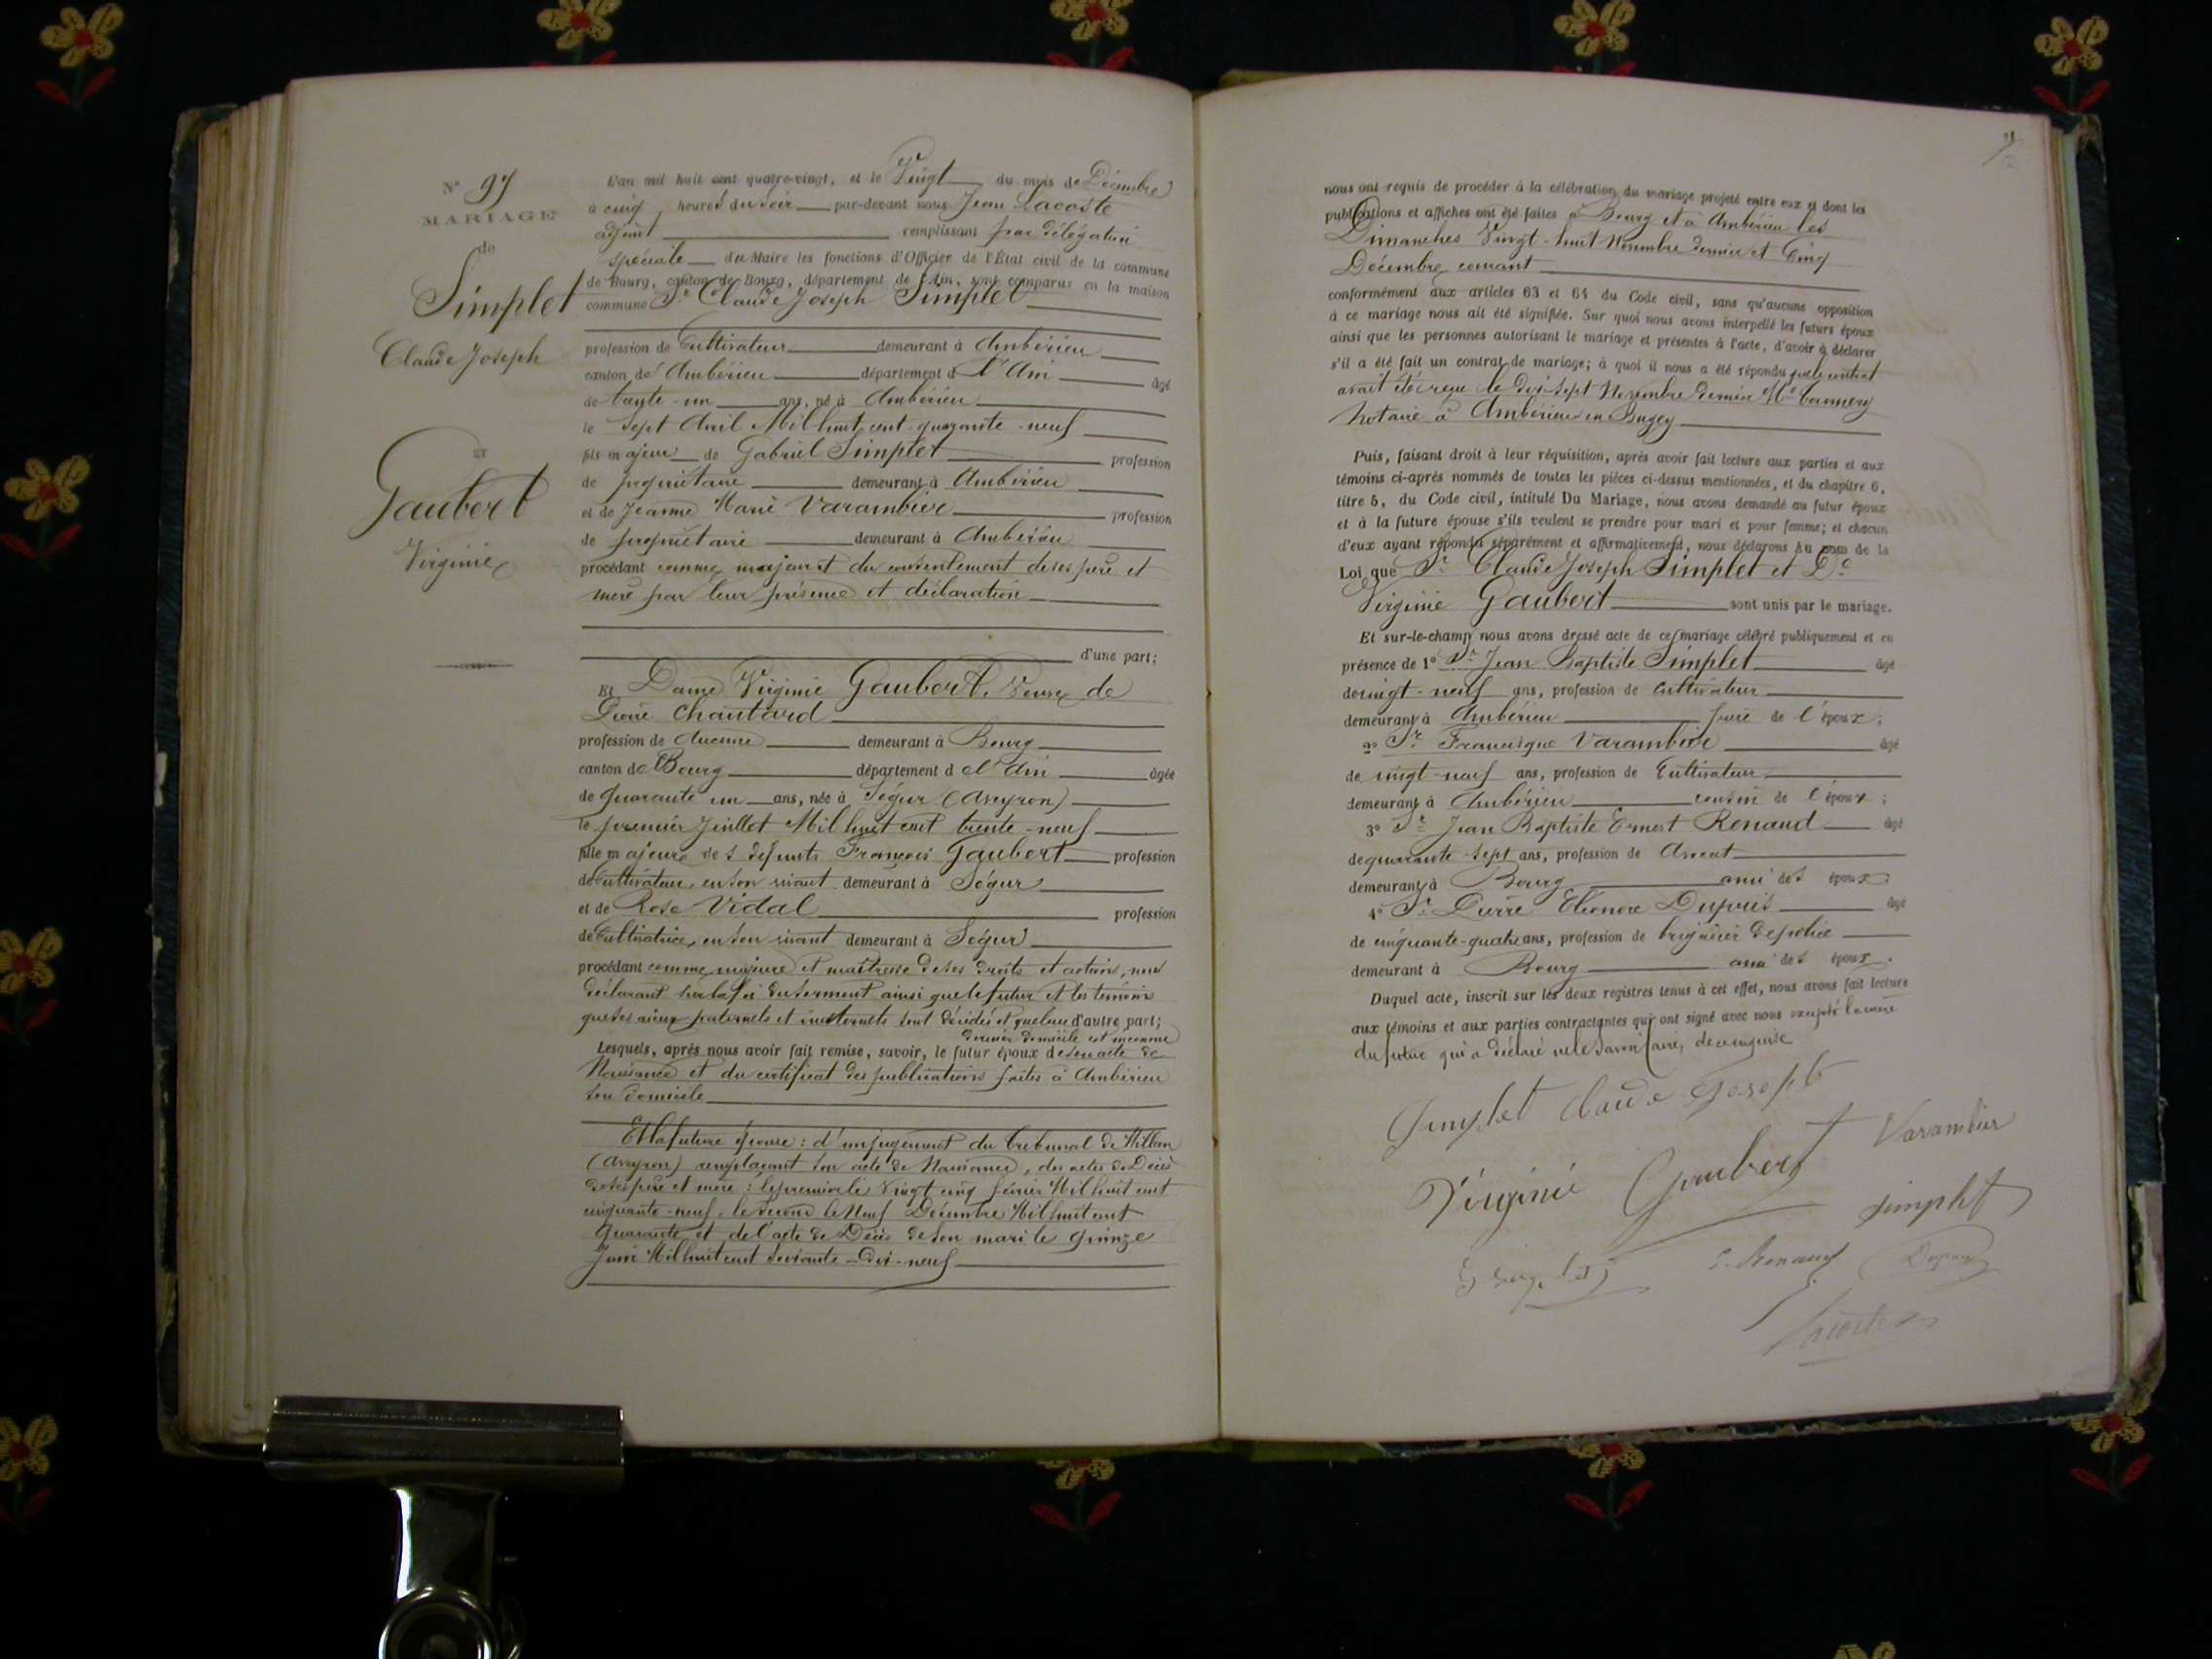 N° 97
MARIAGE
de
Simplet
Claude Joseph
ET
Gaubert
Virginie
L'an mil huit cent quatre-vingt, et le Vingt du mois de Décembre
à cinq heures du soir par-devant nous Jean Lacoste
adjoint remplissant par délégation
spéciale du Maire les fonctions d'Officier de l'État civil de la commune
de Bourg, canton de Bourg, département de l'Ain, sont comparus en la maison
commune Sr Claude Joseph Simplet
profession de Cultivateur demeurant à Ambérieu
canton de Ambérieu département d l'Ain âgé
de trente-un ans, né à Ambérieu
le Sept Avril Mil huit cent quarante-neuf
fils majeur de Gabriel Simplet profession
de propriétaire demeurant à Ambérieu
et de Jeanne Marie Varambier profession
de propriétaire demeurant à Ambérieu
procédant comme majeur et du consentement de ses père et
mère par leur présence et déclaration
d'une part;
Et Dame Virginie Gaubert, Veuve de
Pierre Chautard
profession de Aucune demeurant à Bourg
canton de Bourg département d el'Ain âgée
de quarante un ans, née à Ségur (Aveyron)
le premier Juillet Mil huit cent trente-neuf
fille majeure de s défunts François Gaubert profession
de Cultivateur, en son vivant demeurant à Ségur
et de Rose Vidal profession
de Cultivatrice, en son vivant demeurant à Ségur
procédant comme majeure et maîtresse de ses droits et actions, nous
déclarant sur la foi du serment ainsi que le futur et les témoins
que ses aïeux paternels et maternels sont décédés et que leur d'autre part;
dernier domicile est inconnu
Lesquels, après nous avoir fait remise, savoir, le futur époux de son acte de
Naissance et du certificat des publications faites à Ambérieu
son domicile
Et la future épouse : d'un jugement du tribunal de Millau
(Aveyron) remplaçant son acte de Naissance, des actes de Décès
de ses père et mère : le premier le Vingt cinq février Mil huit cent
cinquante-neuf, le second le Neuf Décembre Mil huit cent
quarante et de l'acte de Décès de son mari le quinze
Juin Mil huit cent soixante-Dix-neuf
nous ont requis de procéder à la célébration du mariage projeté entre eux et dont les
publications et affiches ont été faites à Bourg et à Ambérieu les
Dimanches Vingt-huit Novembre dernier et Cinq
Décembre courant
conformément aux articles 63 et 64 du Code civil, sans qu'aucune opposition
à ce mariage nous ait été signifiée. Sur quoi nous avons interpellé les futurs époux
ainsi que les personnes autorisant le mariage et présentes à l'acte, d'avoir à déclarer
s'il a été fait un contrat de mariage; à quoi il nous a été répondu que le contrat
avait été reçu le dix-sept Novembre dernier Me
Notaire à Ambérieu en Bugey
Puis, faisant droit à leur réquisition, après avoir fait lecture aux parties et aux
témoins ci-après nommés de toutes les pièces ci-dessus mentionnées, et du chapitre 6,
titre 5, du Code civil, intitulé Du Mariage, nous avons demandé au futur époux
et à la future épouse s'ils veulent se prendre pour mari et pour femme; et chacun
d'eux ayant répondu séparément et affirmativement, nous déclarons Au nom de la
Loi que Sr Claude Joseph Simplet et De
Virginie Gaubert sont unis par le mariage.
Et sur-le-champ nous avons dressé acte de ce mariage célébré publiquement et en
présence de 1° Sr Jean Baptiste Simplet âgé
de vingt-neuf ans, profession de Cultivateur
demeurant à Ambérieu frère de l'époux;
2° Sr Francisque Varambier âgé
de vingt-neuf ans, profession de Cultivateur
demeurant à Ambérieu cousin de l'époux;
3° Sr Jean Baptiste Ernest Renaud âgé
de quarante-sept ans, profession de Avocat
demeurant à Bourg ami des époux.
4° Sr Pierre Eléonore Dupuis âgé
de cinquante-quatre ans, profession de brigadier de police
demeurant à Bourg ami des époux.
Duquel acte, inscrit sur les deux registres tenus à cet effet, nous avons fait lecture
aux témoins et aux parties contractantes qui ont signé avec nous excepté la mère
du futur qui a déclaré ne le savoir faire, de ce enquise
Simplet Claude Joseph
Varambier
Virginie Gaubert
Simplet
E. Renaud
Dupuis
Lacoste